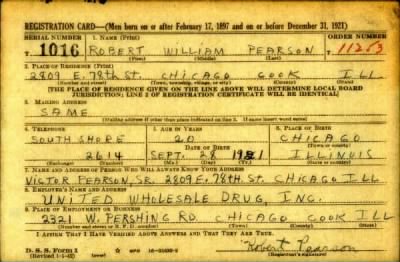 REGISTRATION CARD—(Men born on or after February 17, 1897 and on or before December 31, 1921)
SERIAL NUMBER 1. NAME (Print) ORDER NUMBER
T. 1016 ROBERT WILLIAM PEARSON T. 11253
(First) (Middle) (Last)
2. PLACE OF RESIDENCE (Print)
2809 E. 78th ST. CHICAGO COOK ILL
(Number and street) (Town, township, village, or city) (County) (State)
[THE PLACE OF RESIDENCE GIVEN ON THE LINE ABOVE WILL DETERMINE LOCAL BOARD
JURISDICTION; LINE 2 OF REGISTRATION CERTIFICATE WILL BE IDENTICAL]
3. MAILING ADDRESS
SAME
[Mailing address if other than place indicated on line 2. If same insert word same]
4. TELEPHONE 5. AGE IN YEARS 6. PLACE OF BIRTH
SOUTH SHORE 20 CHICAGO
DATE OF BIRTH (Town or county)
2614 SEPT. 28 1921 ILLINOIS
(Exchange) (Number) (Mo.) (Day) (Yr.) (State or country)
7. NAME AND ADDRESS OF PERSON WHO WILL ALWAYS KNOW YOUR ADDRESS
VICTOR PEARSON, SR. 2809 E. 78th ST. CHICAGO ILL
8. EMPLOYER'S NAME AND ADDRESS
UNITED WHOLESALE DRUG, INC.
9. PLACE OF EMPLOYMENT OR BUSINESS
2321 W. PERSHING RD. CHICAGO COOK ILL
(Number and street or R. F. D. number) (Town) (County) (State)
I AFFIRM THAT I HAVE VERIFIED ABOVE ANSWERS AND THAT THEY ARE TRUE.
D. S. S. Form 1
(Revised 1-1-42) (over)
Robert Pearson